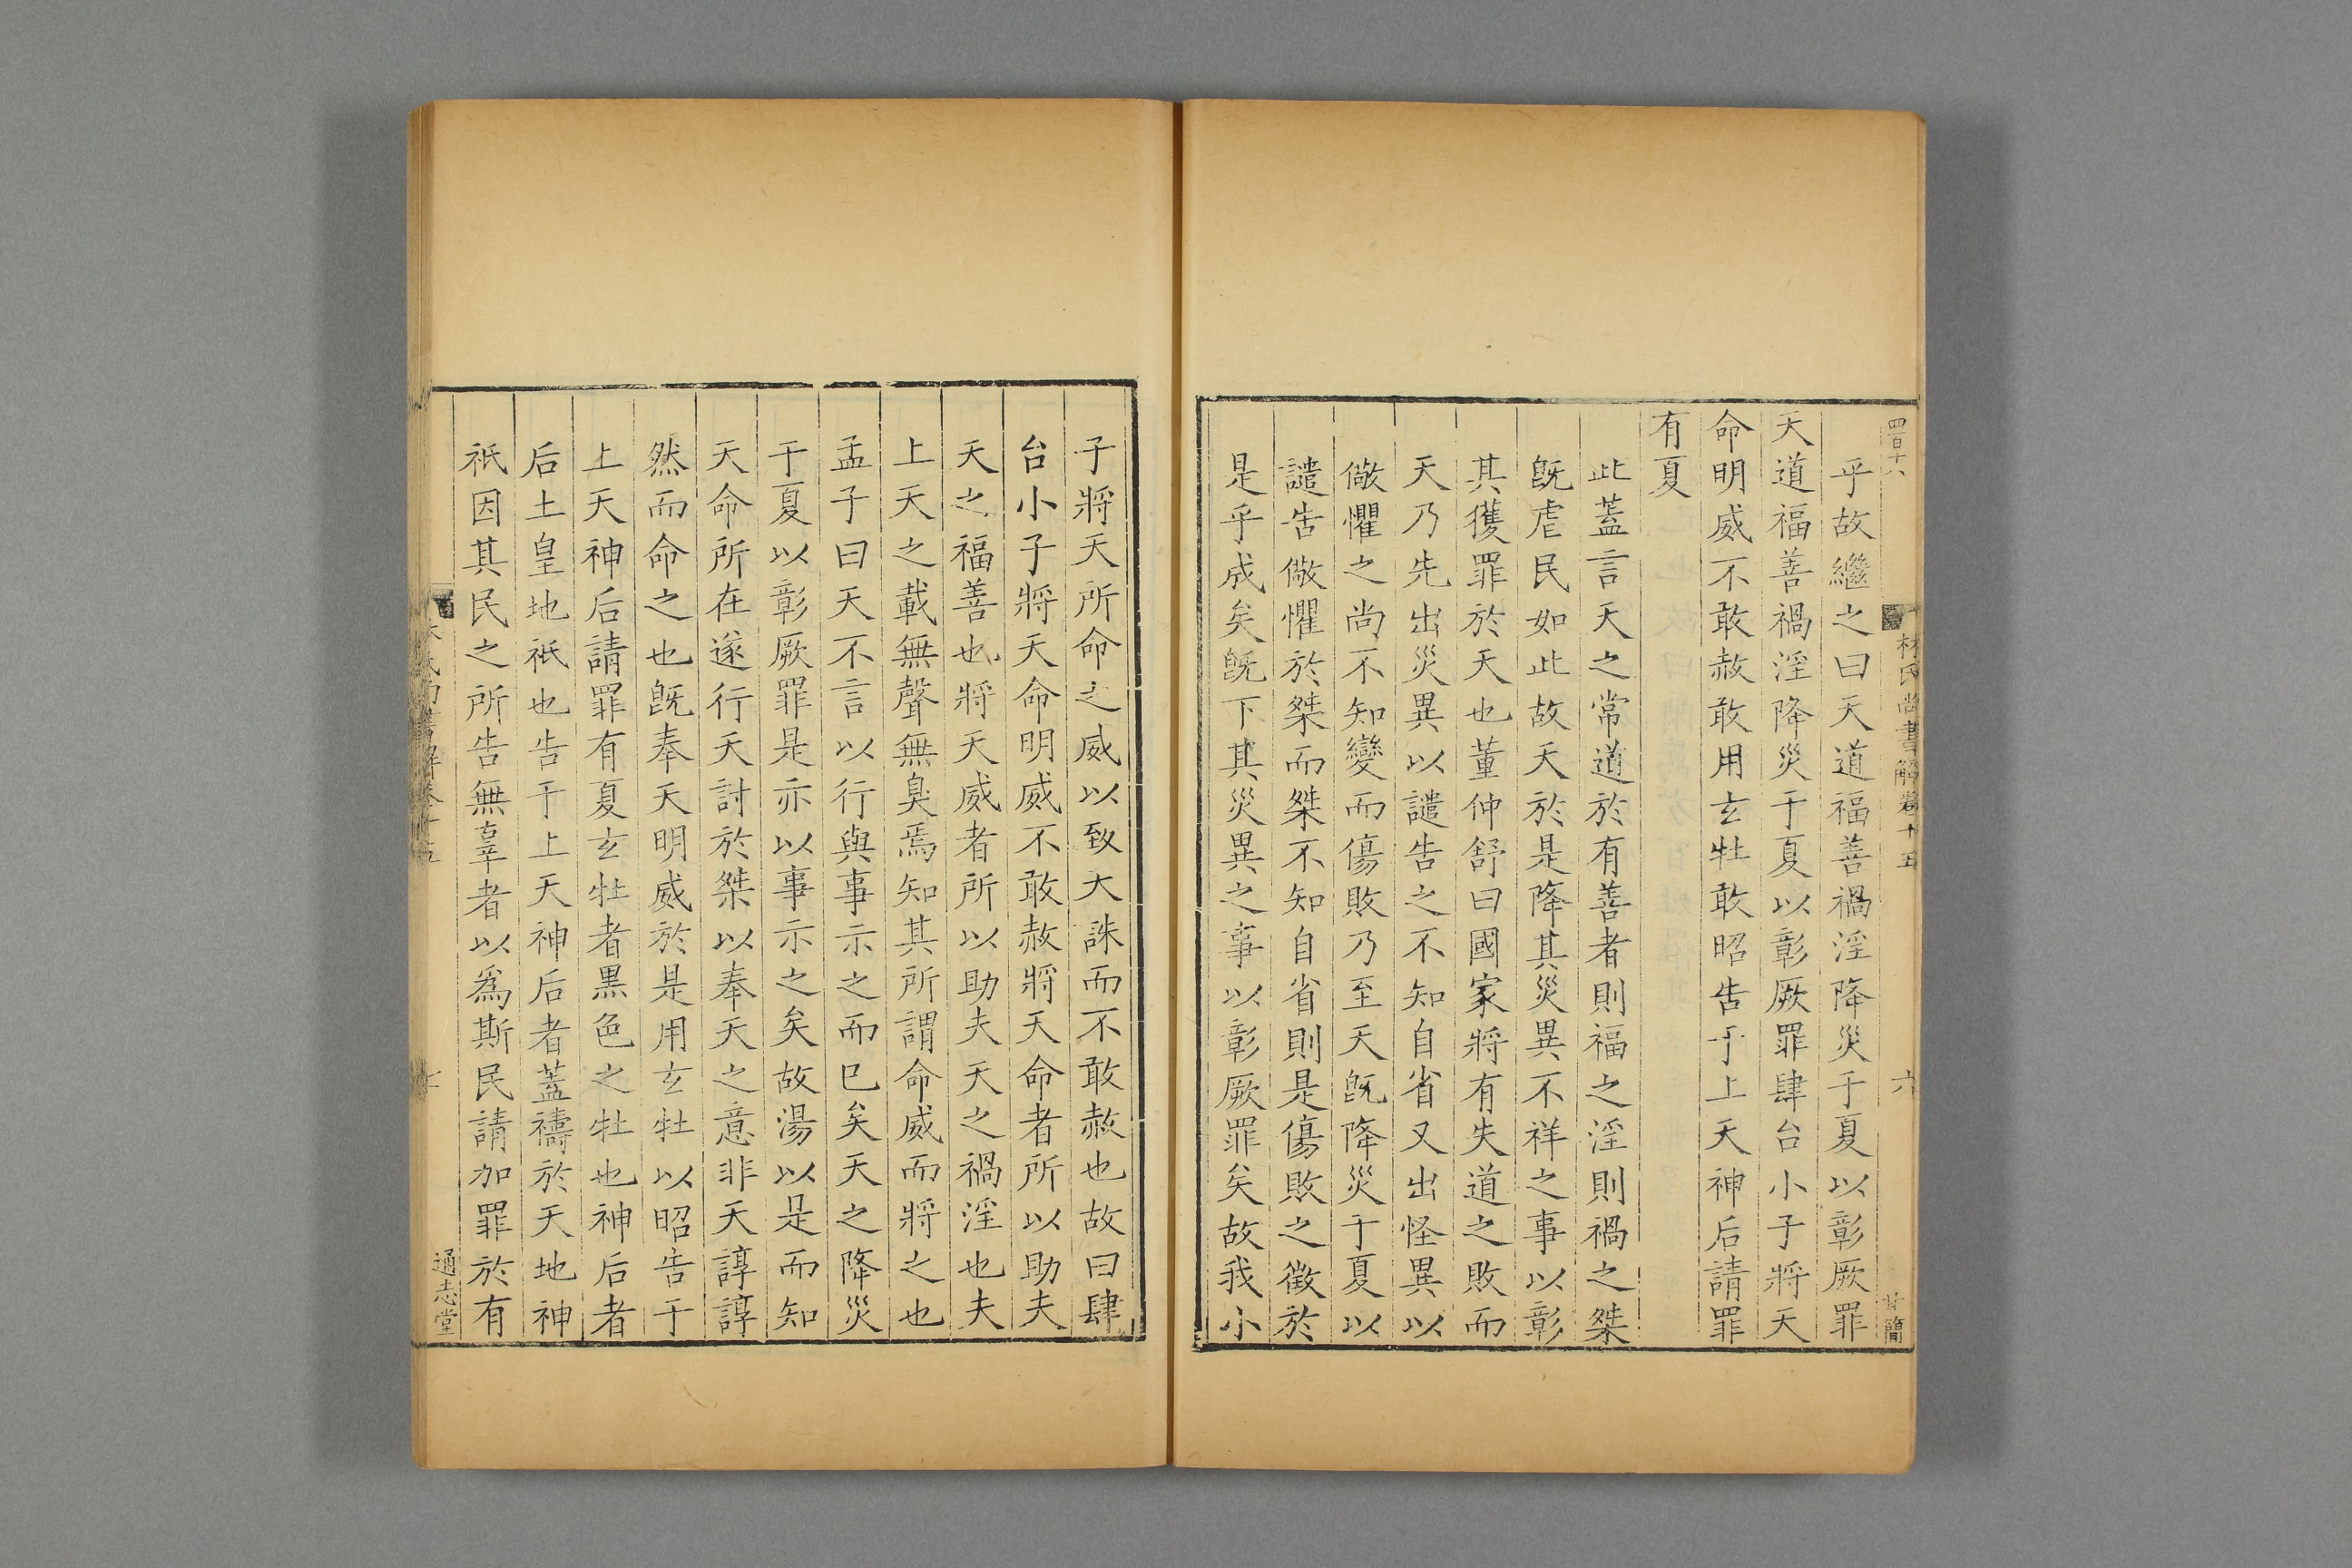 四百十八
林氏尚書解卷十五
六
甘簡
乎故繼之曰天道福善禍淫降災于夏以彰厥罪
天道福善禍淫降災于夏以彰厥罪肆台小子將天
命明威不敢赦敢用玄牡敢昭告于上天神后請罪
有夏
此蓋言天之常道於有善者則福之淫則禍之桀
旣虐民如此故天於是降其災異不祥之事以彰
其獲罪於天也董仲舒曰國家將有失道之敗而
天乃先出災異以譴告之不知自省又出怪異以
儆懼之尚不知變而傷敗乃至天旣降災于夏以
譴告儆懼於桀而桀不知自省則是傷敗之徵於
是乎成矣旣下其災異之事以彰厥罪矣故我小
子將天所命之威以致大誅而不敢赦也故曰肆
台小子將天命明威不敢赦將天命者所以助夫
天之福善也將天威者所以助夫天之禍淫也夫
上天之載無聲無臭焉知其所謂命威而將之也
孟子曰天不言以行與事示之而已矣天之降災
于夏以彰厥罪是亦以事示之矣故湯以是而知
天命所在遂行天討於桀以奉天之意非天諄諄
然而命之也旣奉天明威於是用玄牡以昭告于
上天神后請罪有夏玄牡者黒色之牡也神后者
后土皇地祇也告于上天神后者蓋禱於天地神
祇因其民之所告無辜者以爲斯民請加罪於有
氏尚書解卷十五
通志堂